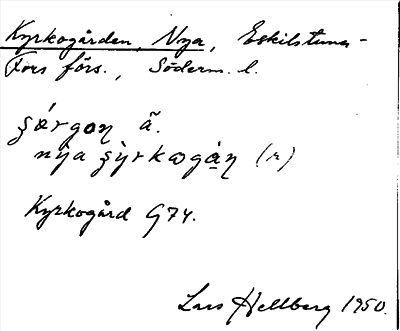 Kyrkogården, Nya, Eskilstuna-
Fors förs., Söderm. l.
şǿrgoƞ ã.
nỳa şỳrkɷgȧ́ƞ (r)
Kyrkogård G74.
Lars Hellberg 1950.